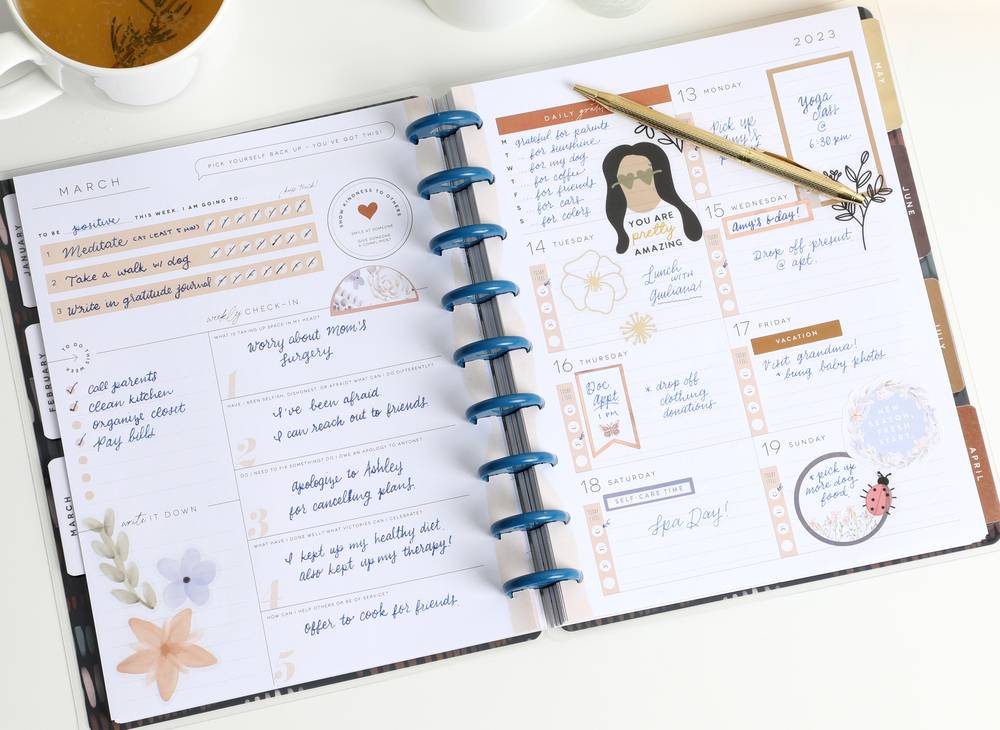 PICK YOURSELF BACK UP - YOU'VE GOT THIS!
MARCH
TO BE positive THIS WEEK, I AM GOING TO...
1 Meditate (AT LEAST 5 MIN)
2 Take a walk w/ dog
3 Write in gratitude journal
SHOW KINDNESS TO OTHERS
SMILE AT SOMEONE
GIVE SOMEONE
A COMPLIMENT
weekly CHECK-IN
TO DO
THIS WEEK
call parents
clean kitchen
organize closet
Pay bills
write IT DOWN
WHAT IS TAKING UP SPACE IN MY HEAD?
Worry about Mom's
surgery
1
HAVE I BEEN SELFISH, DISHONEST, OR AFRAID? WHAT CAN I DO DIFFERENTLY?
I've been afraid.
I can reach out to friends.
2
DO I NEED TO FIX SOMETHING? DO I OWE AN APOLOGY TO ANYONE?
Apologize to Ashley
for cancelling plans.
3
WHAT HAVE I DONE WELL? WHAT VICTORIES CAN I CELEBRATE?
I kept up my healthy diet.
also kept up my therapy!
4
HOW CAN I HELP OTHERS OR BE OF SERVICE?
offer to cook for friends.
5
JANUARY
FEBRUARY
MARCH
2023
DAILY
M grateful for parents
T ... for sunshine
W ... for my dog
T ... for coffee
F ... for friends
S ... for cars
S ... for colors
YOU ARE
pretty
AMAZING
13 MONDAY
Pick up
Amy's
Yoga
class
@
6:30 pm
14 TUESDAY
Lunch
WITH
Giuliana!
15 WEDNESDAY
Amy's b-day!
Drop off present
@ apt.
16 THURSDAY
Doc
appt
1 PM
* drop off
clothing
donations
17 FRIDAY
VACATION
Visit grandma!
* bring baby photos
18 SATURDAY
SELF-CARE TIME
Spa Day!
19 SUNDAY
* pick up
more dog
food
NEW
SEASON,
FRESH
START
MAY
JUNE
JULY
APRIL